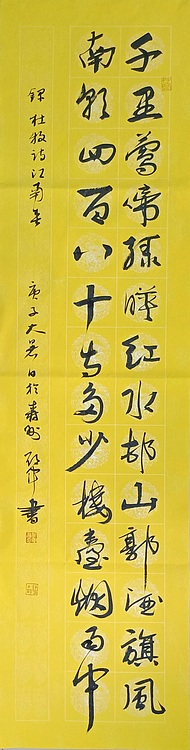 千里鶯啼綠暎紅水邨山郭酒旗風
南朝四百八十寺多少樓臺烟雨中
錄杜牧詩江南春 庚子大暑日於 書